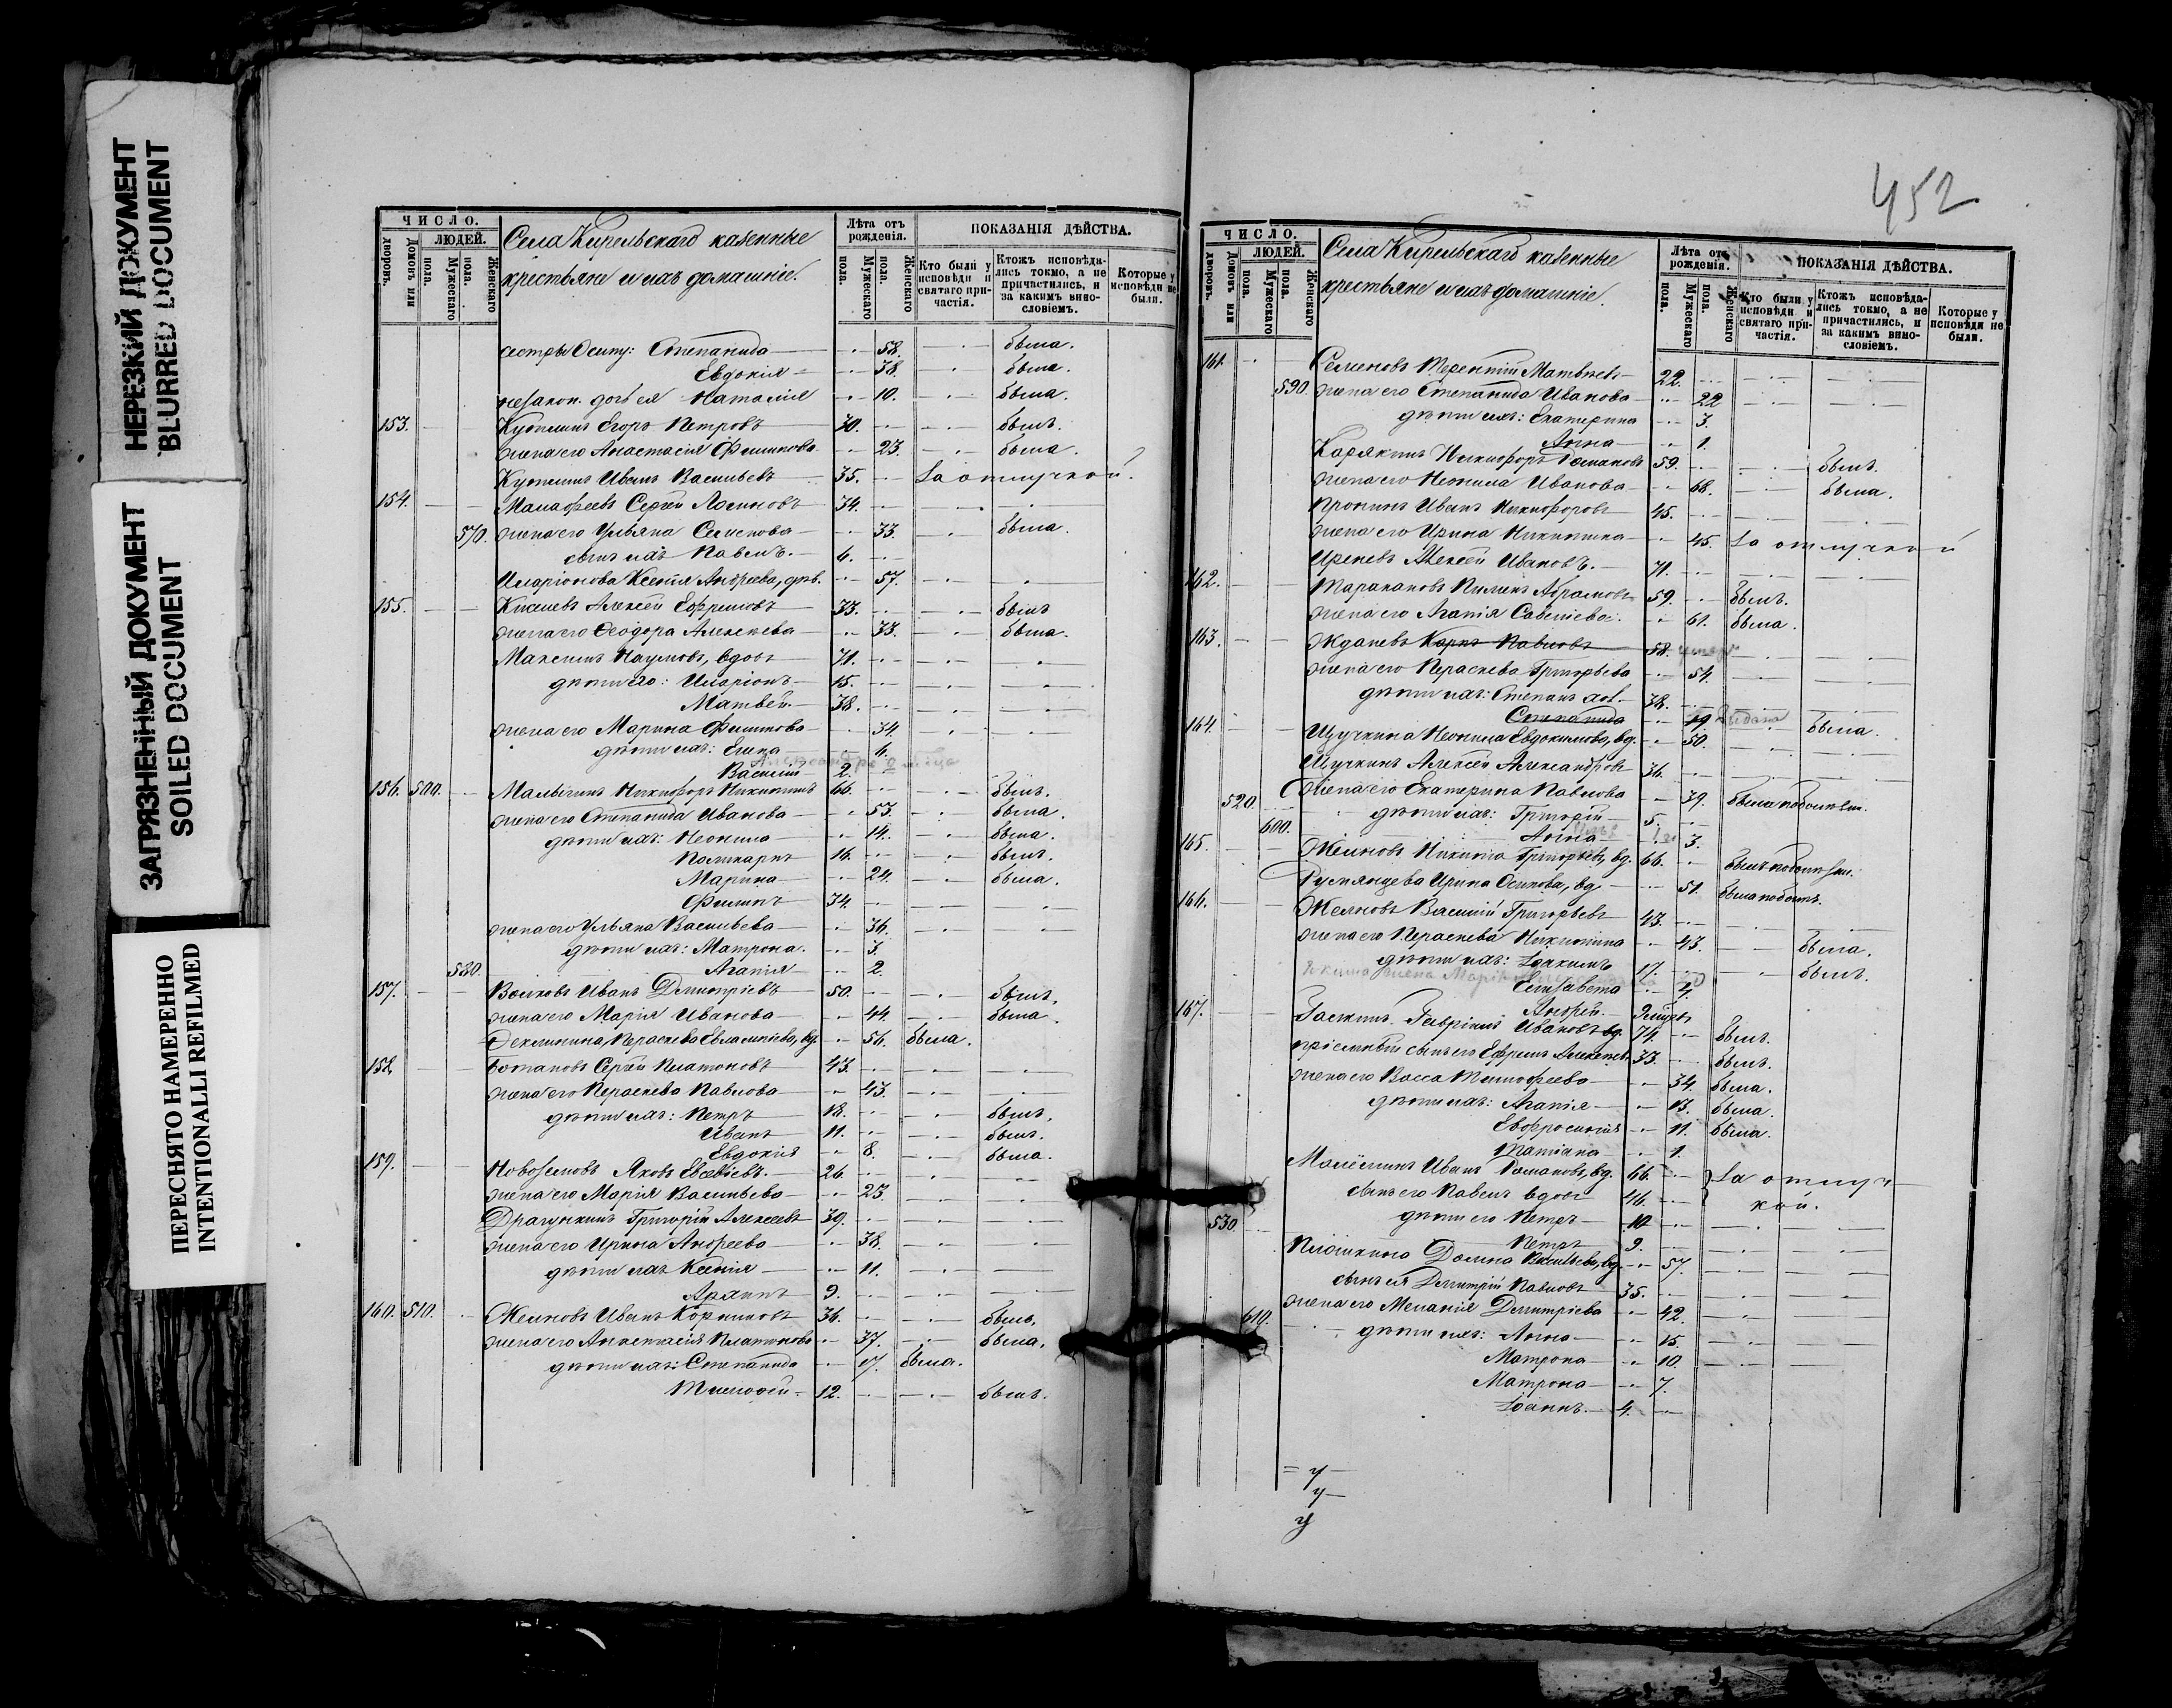 НЕРЕЗКИЙ ДОКУМЕНТ
BLURRED DOCUMENT
ЗАГРЯЗНЕННЫЙ ДОКУМЕНТ
SOILED DOCUMENT
ПЕРЕСНЯТО НАМЕРЕННО
INTENTIONALLI REFILMED
ЧИСЛО.
ЛЮДЕЙ.
Домовъ или дворовъ.
Мужескаго пола.
Женскаго пола.
Села Кирельскаго казенные
крестьяне и ихъ домашніе.
Лѣта отъ рожденія.
Мужескаго пола.
Женскаго пола.
ПОКАЗАНІЯ ДѢЙСТВА.
Кто были у исповѣди и святаго причастія.
Ктожъ исповѣдались токмо, а не причастились, и за какимъ винословіемъ.
Которые у исповѣди не были.
сестры Осипу: Степанида 58. была.
Евдокія 38. была.
незакон. дочь ея Наталія 10. была.
153. Егоръ Петровъ 30. былъ.
жена его Анастасія Филипова 23. была.
Иванъ Васильевъ 35. За отлучкой.
154. Малафеевъ Сергѣй Логиновъ 34.
570. жена его Ульяна Семенова 33. была.
сынъ ихъ Павелъ. 6.
Иларіонова Ксенія Андреева, дѣв. 57.
155. Киселевъ Алексѣй Ефремовъ 33. былъ
жена его Ѳеодора Алексѣева 33. была.
Максимъ Наумовъ, вдовъ 71.
дѣти его: Иларіонъ 15.
Матвѣй. 38.
жена его Марина Филипова 34.
дѣти ихъ: Елена 6.
Василій 2.
156. 500. Малыгинъ Никифоръ Никитинъ 66. былъ.
жена его Степанида Иванова 53. была.
дѣти ихъ: Неонила 14. была.
Поликарпъ 16. былъ.
Марина 24. была.
Филипъ 34.
жена его Ульяна Васильева 36.
дѣти ихъ: Матрона. 3.
580. Агапія 2.
157. Волковъ Иванъ Дмитріевъ 50. былъ.
жена его Марія Иванова 44. была.
Параскева Евлампіева, вд. 56. была.
158. Ботановъ Сергѣй Платоновъ 43.
жена его Параскева Павлова 43.
дѣти ихъ: Петръ 18. былъ.
Иванъ 11. былъ.
Евдокія 8. была.
159. Новоселовъ Яковъ Евсевіевъ. 26.
жена его Марія Васильева 23.
Драгункинъ Григорій Алексеевъ 39.
жена его Ирина Андреева 38.
дѣти ихъ Ксенія 11.
9.
160. 510. Желновъ Иванъ Корниловъ 36. былъ.
жена его Анастасія Платонова 37. была.
дѣти ихъ: Степанида 17. была.
Тимофей 12. былъ.
452
ЧИСЛО.
ЛЮДЕЙ.
Домовъ или дворовъ.
Мужескаго пола.
Женскаго пола.
Села Кирельскаго казенные
крестьяне и ихъ домашніе.
Лѣта отъ рожденія.
Мужескаго пола.
Женскаго пола.
ПОКАЗАНІЯ ДѢЙСТВА.
Кто были у исповѣди и святаго причастія.
Ктожъ исповѣдались токмо, а не причастились, и за какимъ винословіемъ.
Которые у исповѣди не были.
161. Семеновъ Терентій Матвѣевъ 22.
590. жена его Степанида Иванова 22
дѣти ихъ: Екатерина 3.
Анна 1.
Карякинъ Никифоръ Романовъ 59. былъ.
жена его Неонила Иванова 68. была.
Пронинъ Иванъ Никифоровъ 45.
жена его Ирина Никитина 45. За отлучкой
Иреневъ Алексѣй Ивановъ. 71.
162. Таракановъ Пименъ Абрамовъ 59. былъ.
жена его Агапія Савельева. 61. была.
163. Ждановъ Карпъ Павловъ 58. умеръ
жена его Параскева Григорьева 54.
дѣти ихъ: Степанъ хол. 38.
Степанида 19 была.
164. Щучкина Неонила Евдокимова, вд. 50.
Щучкинъ Алексѣй Александровъ 36.
520. жена его Екатерина Павлова 39.
дѣти ихъ: Григорій 5.
600. Анна 3.
165. Желновъ Никита Григорьевъ, вд. 66.
Румянцева Ирина Осипова, вд 51.
166. Желновъ Василій Григорьевъ 43.
жена его Параскева Никитина 43. была.
дѣти ихъ: Іоакимъ 17. былъ.
Елизавета 4.
Андрей.
167. Гаскинъ Гавріилъ Ивановъ вд. 74. былъ.
пріемный сынъ его Ефремъ Алексѣевъ 33. былъ.
жена его Васса Тимофеева 34. была.
дѣти ихъ: Агапія 13. была.
Евфросинія 11. была.
Татіана 1.
Иванъ Романовъ, вд. 66. За отлуч-
сынъ его Павелъ вдовъ 46. кой.
530. дѣти его Петръ 10
Петръ 9.
Плошкина Домна Васильева, вд 57.
сынъ ея Дмитрій Павловъ 35.
610. жена его Меланія Дмитріева 42.
дѣти ихъ: Анна 15.
Матрона 10.
Матрона 7.
Іоаннъ. 4.